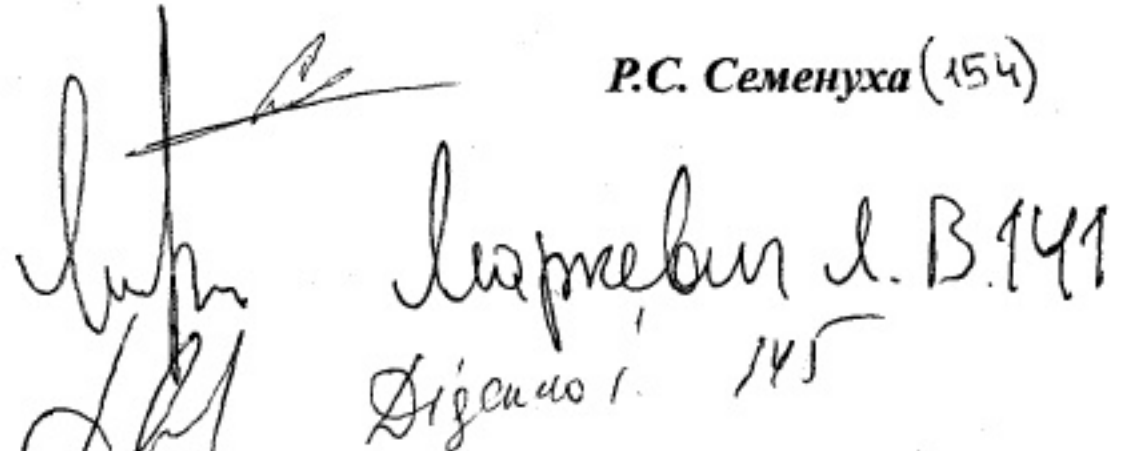 Р.С. Семенуха (154)
Маркевич Я.В. 141
Діденко І. 145